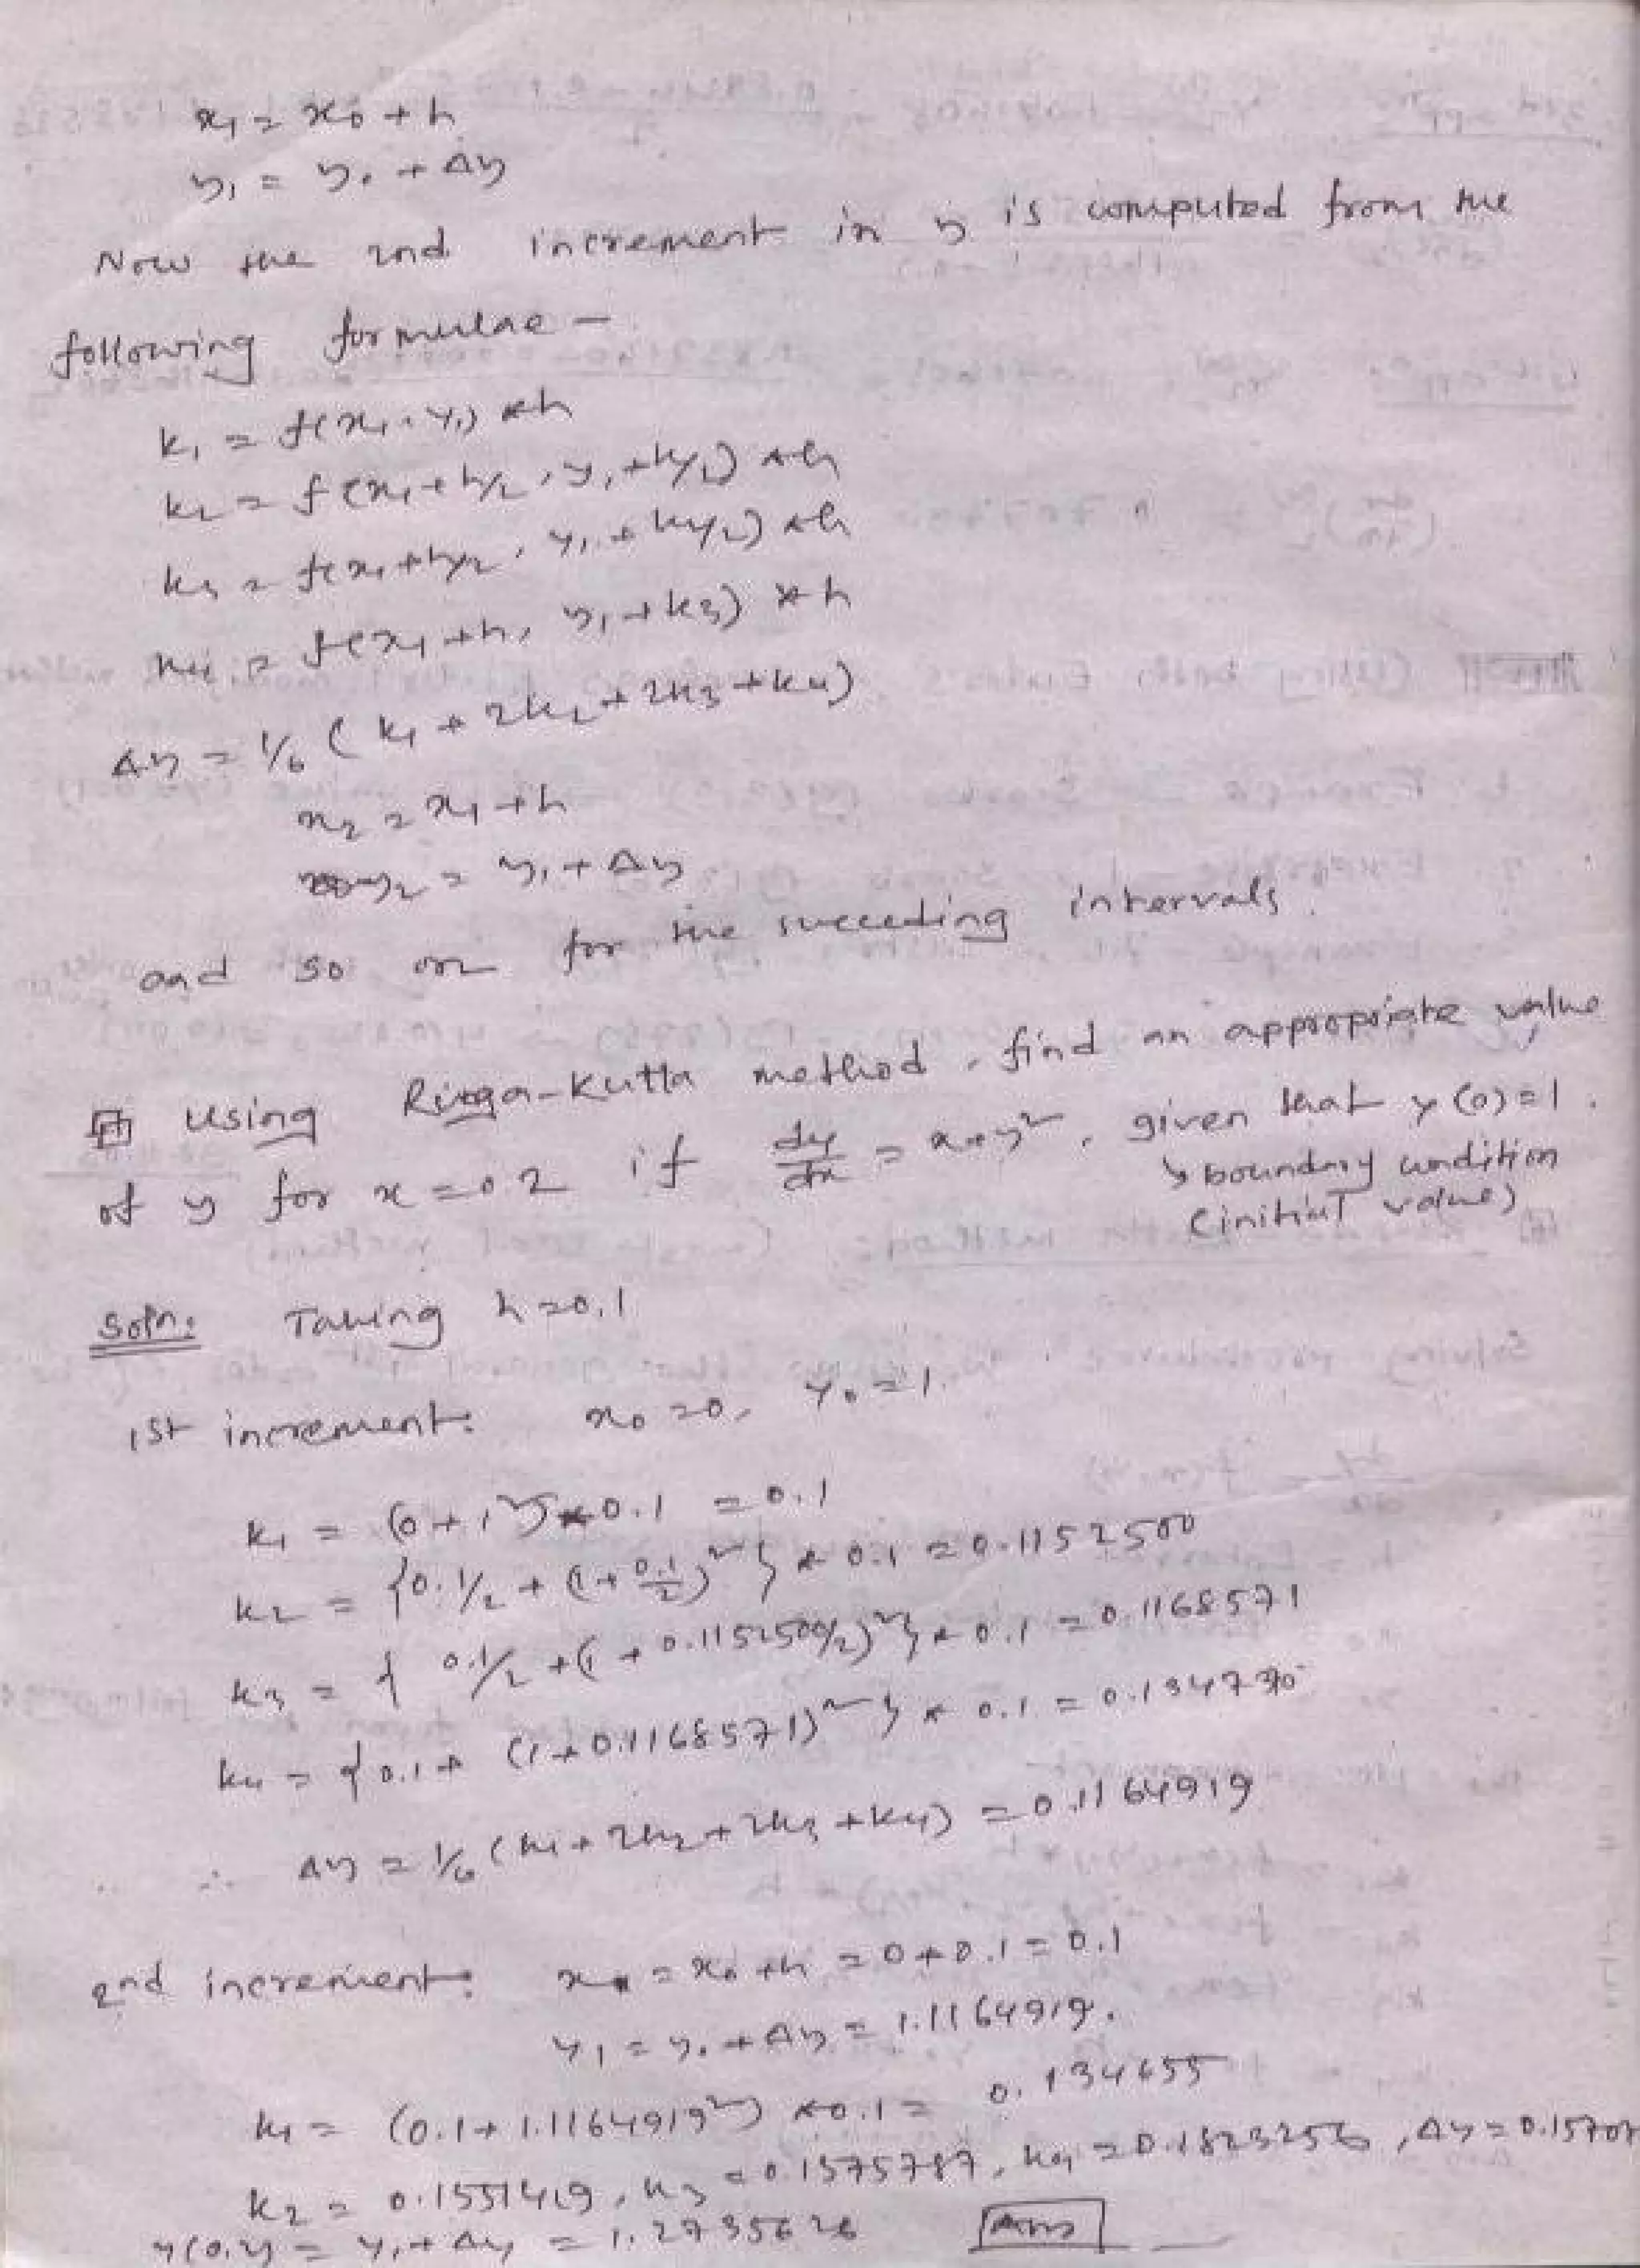 x₁ = x₀ + h
y₁ = y₀ + Δy
Now the 2nd increment in y is computed from the
following formulae —
k₁ = f(x₁, y₁) * h
k₂ = f(x₁ + h/2, y₁ + k₁/2) * h
k₃ = f(x₁ + h/2, y₁ + k₂/2) * h
k₄ = f(x₁ + h, y₁ + k₃) * h
Δy = 1/6 (k₁ + 2k₂ + 2k₃ + k₄)
x₂ = x₁ + h
y₂ = y₁ + Δy
and so on for the succeeding intervals.
Using Runga-Kutta method, find an appropriate value
of y for x = 0.2 if dy/dx = x + y², given that y(0) = 1.
↳ boundary condition
(initial value)
Soln: Taking h = 0.1
1st increment: x₀ = 0, y₀ = 1.
k₁ = (0 + 1²) * 0.1 = 0.1
k₂ = {0.1/2 + (1 + 0.1/2)²} * 0.1 = 0.1152500
k₃ = {0.1/2 + (1 + 0.1152500/2)²} * 0.1 = 0.1168571
k₄ = {0.1 + (1 + 0.1168571)²} * 0.1 = 0.1347370
∴ Δy = 1/6 (k₁ + 2k₂ + 2k₃ + k₄) = 0.1164919
2nd increment: x₁ = x₀ + h = 0 + 0.1 = 0.1
y₁ = y₀ + Δy = 1.1164919.
k₁ = (0.1 + 1.1164919²) * 0.1 = 0.134655
k₂ = 0.1551419, k₃ = 0.1575787, k₄ = 0.1823256, Δy =
y(0.2) = y₁ + Δy = 1.2735626 Ans